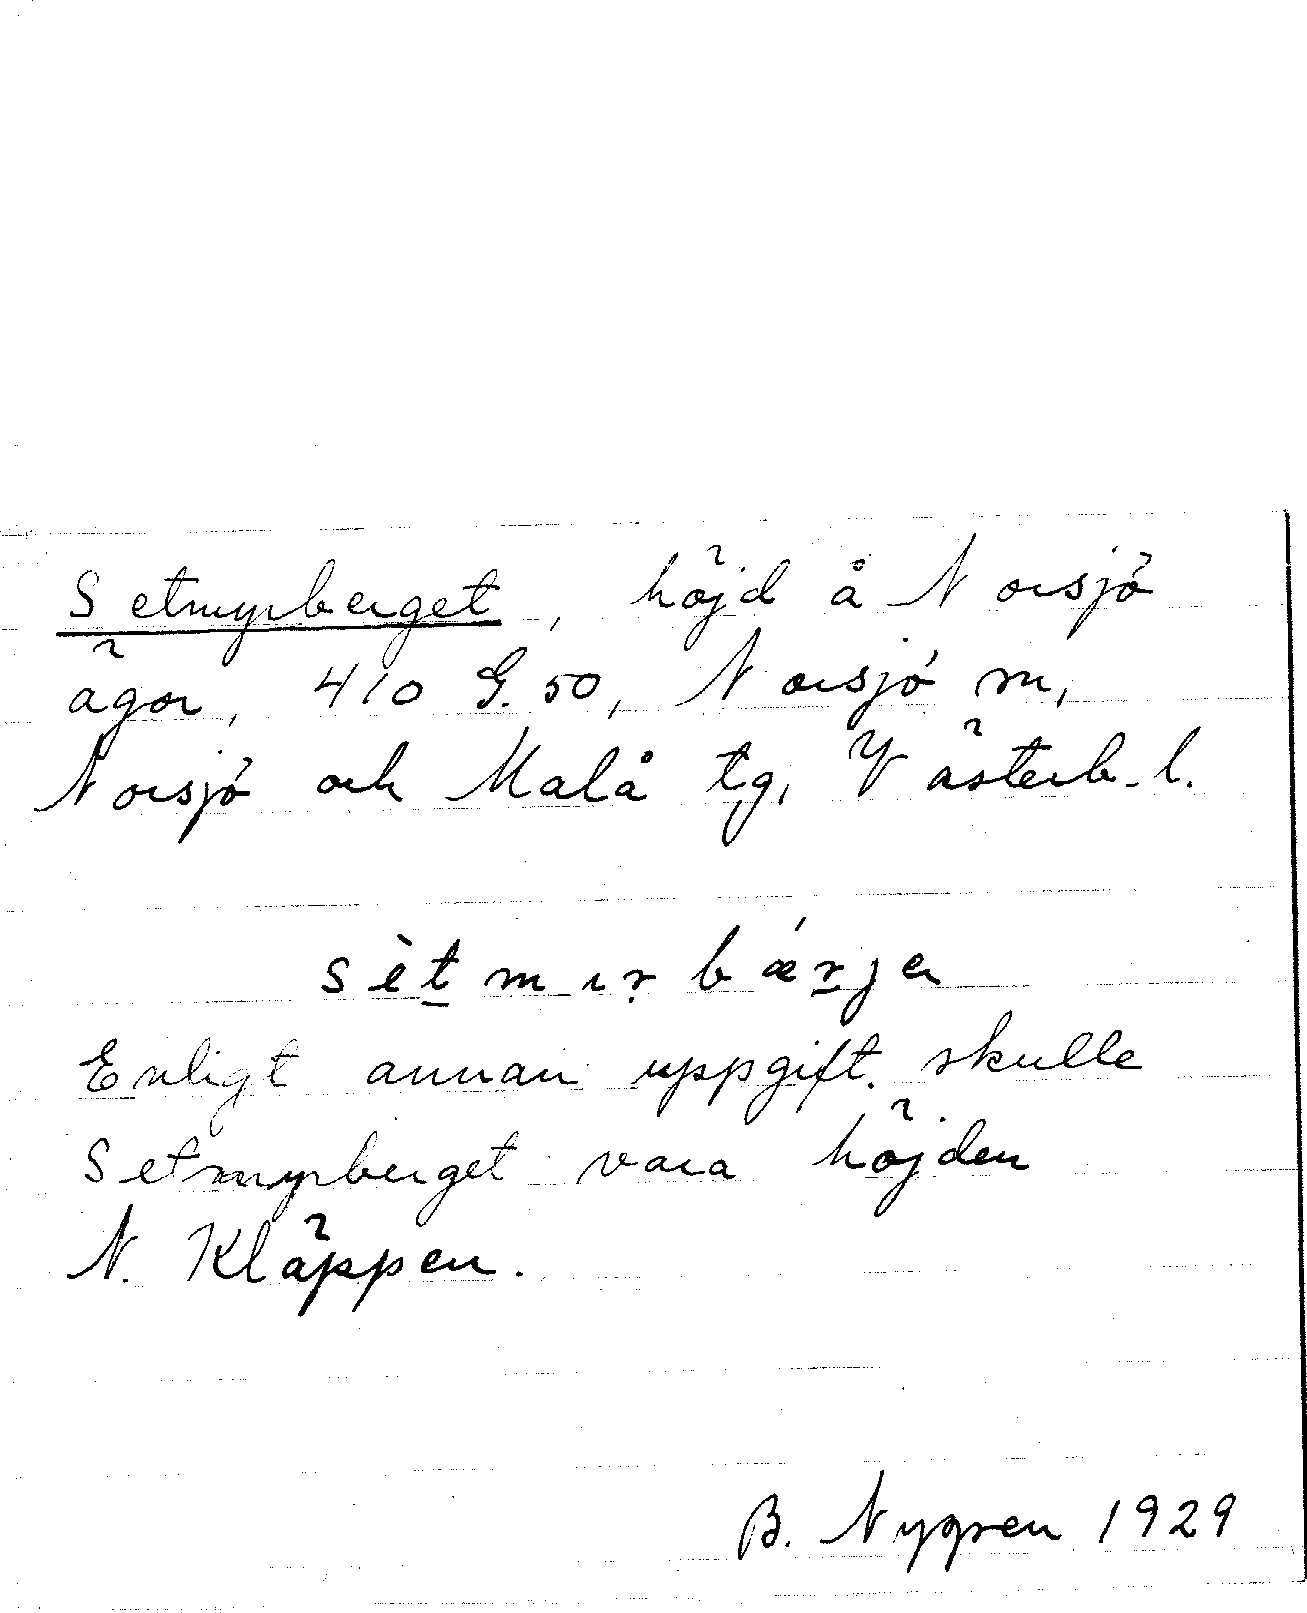 Setmyrberget, höjd å Norsjö
ägor, 410 G. 50, Norsjö sn,
Norsjö och Malå tg, Västerb. l.
sètmır bǽrjen
Enligt annan uppgift skulle
Setmyrberget vara höjden
N. Kläppen.
B. Nygren 1929